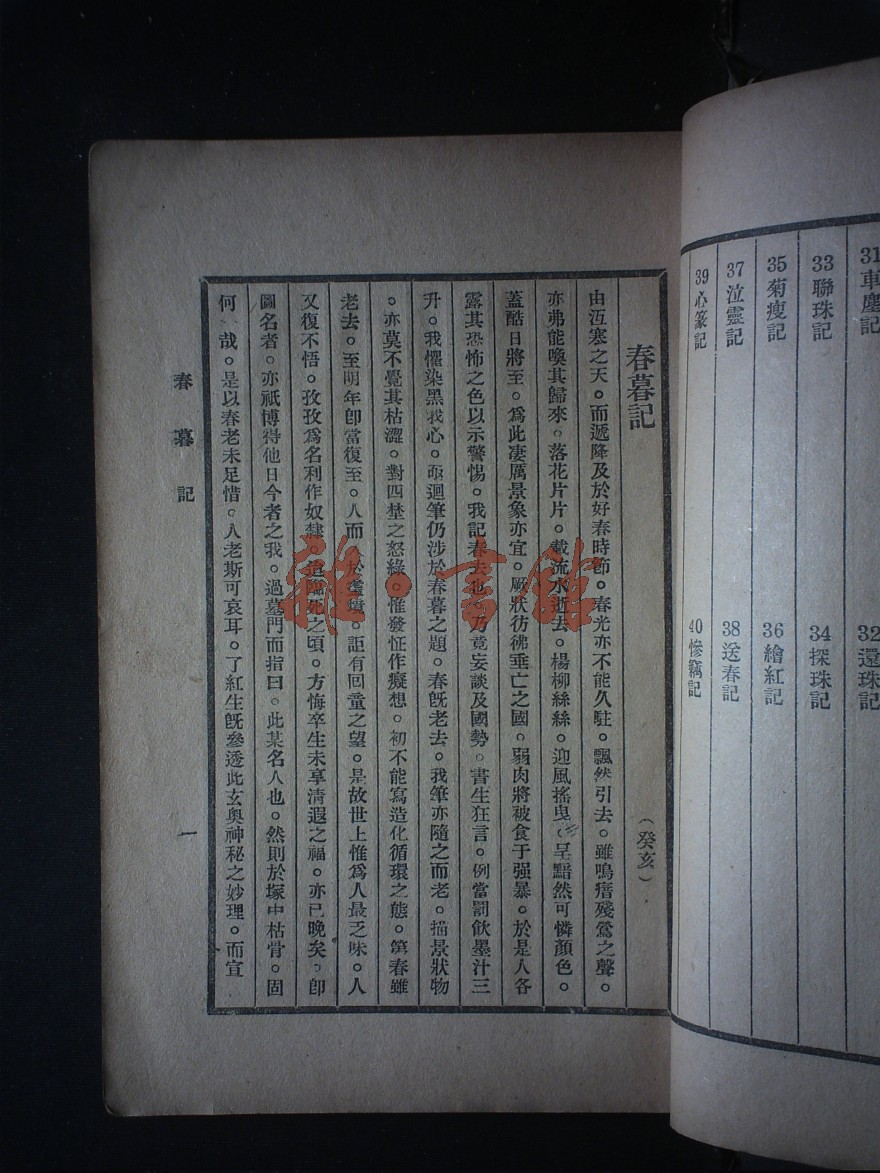 31車塵記
32還珠記
33聯珠記
34探珠記
35菊瘦記
36繪紅記
37泣靈記
38送春記
39心篆記
40慘竊記
春暮記
(癸亥)
由沍寒之天。而遞降及於好春時節。春光亦不能久駐。飄然引去。雖鳴瘖殘鶯之聲。
亦弗能喚其歸來。落花片片。載流水逝去。楊柳絲絲。迎風搖曳。呈黯然可憐顏色。
蓋酷日將至。爲此凄厲景象亦宜。厥狀彷彿垂亡之國。弱肉將被食于强暴。於是人各
露其恐怖之色以示警惕。我記春去也。乃竟妄談及國勢。書生狂言。例當罰飲墨汁三
升。我懼染黑我心。亟迴筆仍涉於春暮之題。春旣老去。我筆亦隨之而老。描景狀物
。亦莫不覺其枯澀。對四埜之怒綠。惟發怔作癡想。初不能寫造化循環之態。第春雖
老去。至明年卽當復至。人而 於 。詎有回童之望。是故世上惟爲人最乏味。人
又復不悟。孜孜爲名利作奴隸。 臨死之頃。方悔卒生未享清遐之福。亦已晚矣。卽
圖名者。亦祇博得他日今者之我。過墓門而指曰。此某名人也。然則於塚中枯骨。固
何 哉。是以春老未足惜。人老斯可哀耳。了紅生旣參透此玄奧神秘之妙理。而宣
春暮記
一
雜·書館